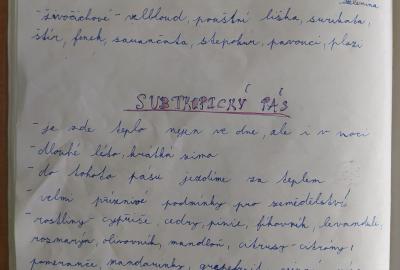 zelenina
- živočichové - velbloud, pouštní liška, surikata,
štír, fenek, sarančata, stepokur, pavouci, plazi
SUBTROPICKÝ PÁS
- je zde teplo nejen ve dne, ale i v noci
- dlouhé léto, krátká zima
- do tohoto pasu jezdíme za teplem
- velmi příznivé podmínky pro zemědělství
- rostliny - cypřiše, cedry, pinie, fíkovník, levandule,
rozmarýn, olivovník, mandloň, citrusy - citróny,
pomeranče, mandarinky, grapefruit,